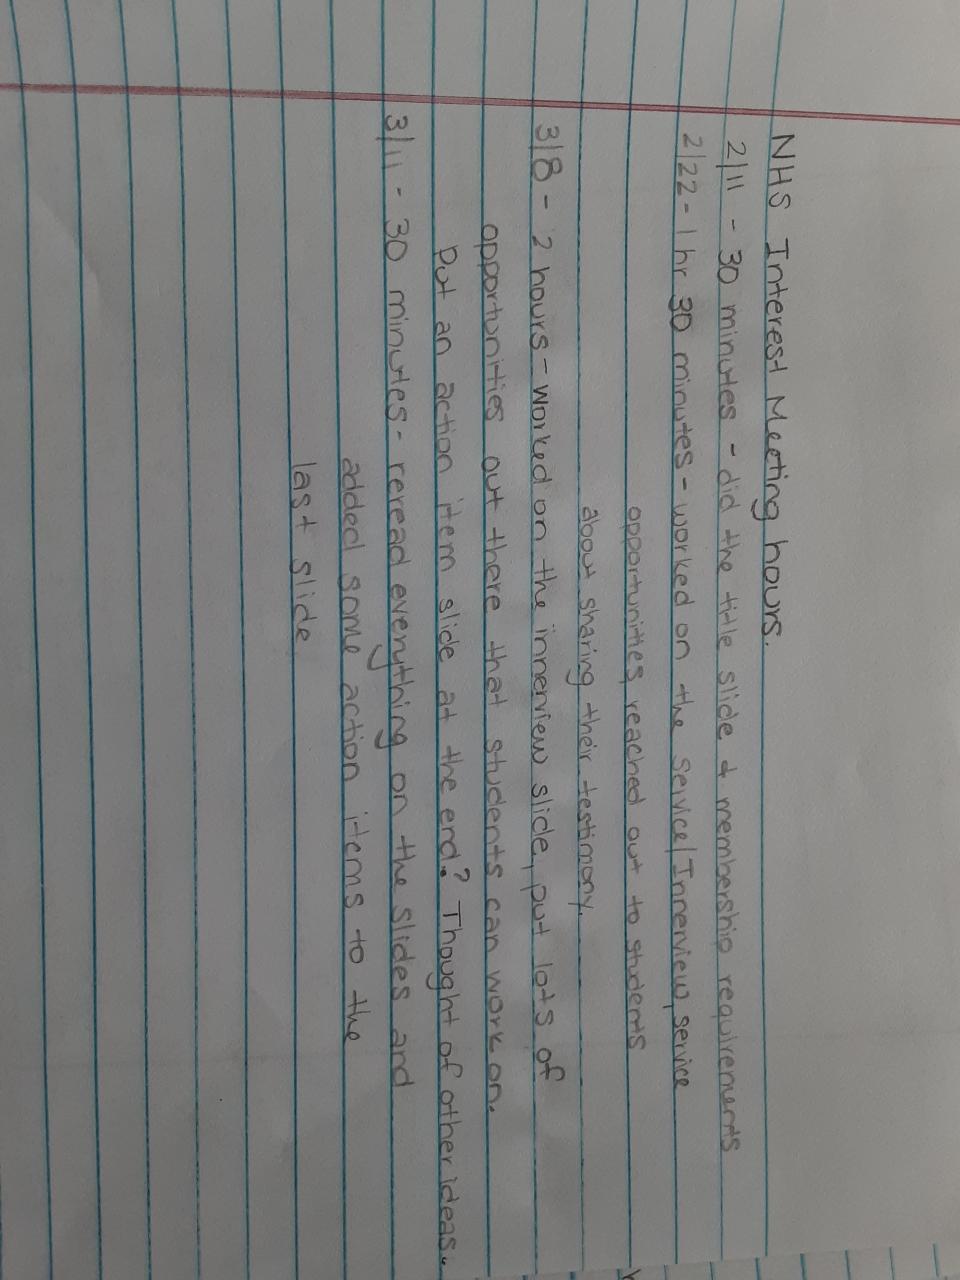 NHS Interest Meeting hours.
2/11 - 30 minutes - did the title slide & membership requirements
2/22 - 1 hr 30 minutes - worked on the service/Innerview, service
opportunities, reached out to students
about sharing their testimony.
3/8 - 2 hours - worked on the innerview slide, put lots of
opportunities out there that students can work on.
Put an action item slide at the end? Thought of other ideas.
3/11 - 30 minutes - reread everything on the slides and
added some action items to the
last slide.